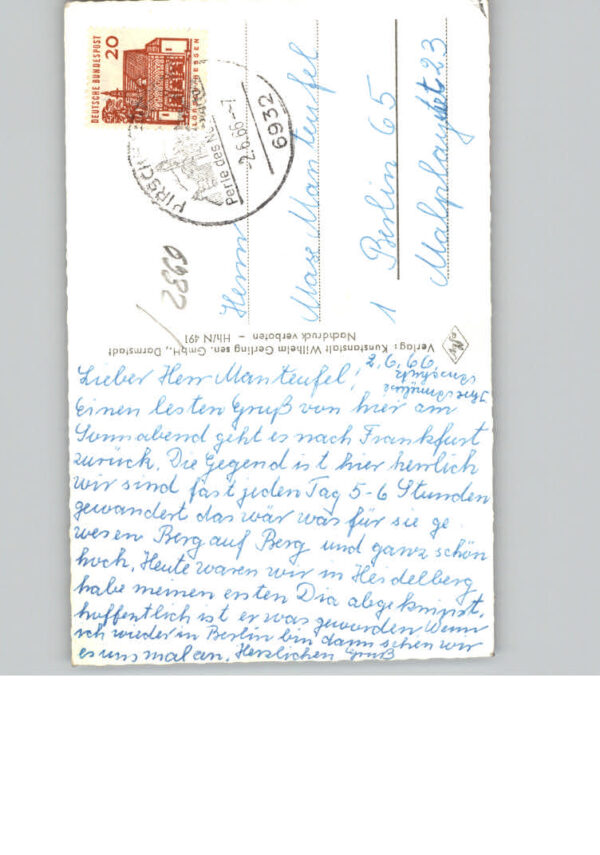 DEUTSCHE BUNDESPOST
20
HIRSCH
Perle des
-2.6.66-7
6932
6932
Herrn
Max Manteufel
1 Berlin 65
Malplaquet 23
Verlag: Kunstanstalt Wilhelm Gerling sen. GmbH., Darmstadt
Nachdruck verboten – Hh/N 491
Lieber Herr Manteufel,
Einen lesten Gruß von hier am
Sonnabend geht es nach Frankfurt
zurück. Die Gegend ist hier herrlich
wir sind fast jeden Tag 5-6 Stunden
gewandert das wär was für sie ge
wesen Berg auf Berg und ganz schön
hoch. Heute waren wir in Heidelberg
habe meinen ersten Dia abgeknipst.
hoffentlich ist er was geworden Wenn
ich wieder in Berlin bin dann sehen wir
es uns mal an. Herzlichen Gruß